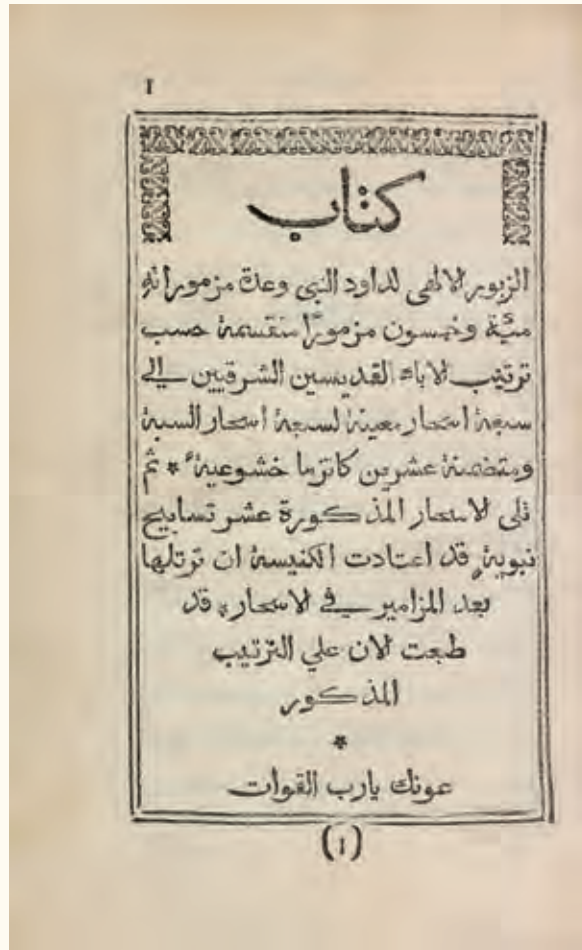 1
كتاب
الزبور الالهى لداود النبى وعدة مزموراته
مئة وخمسون مزمورًا منقسمة حسب
ترتيب الاباء القديسين الشرقيين الي
سبعة اسحار معينة لسبعة اسحار السبة
ومتضمنة عشرين كاتزما خشوعية * ثم
تلى الاسحار المذكورة عشر تسابيح
نبوية قد اعتادت الكنيسة ان ترتلها
بعد المزامير في الاسحار قد
طبعت الان علي الترتيب
المذكور
*
عونك يارب القوات
(1)